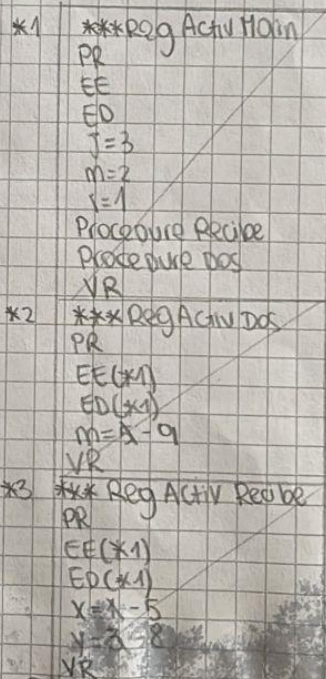 *1 ***Reg Activ Main
PR
EE
ED
J=3
m=2
i=1
Procedure Recibe
Procedure Dos
VR
*2 ***Reg Activ Dos
PR
EE(*1)
ED(*1)
m= - 9
VR
*3 *** Reg Activ Recibe
PR
EE(*1)
ED(*1)
x= - 5
VR